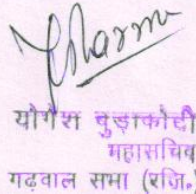 योगेश बुड़ाकोटी
महासचिव
गढ़वाल सभा (रजि.